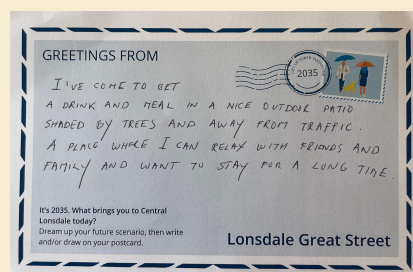 GREETINGS FROM
2035
I'VE COME TO GET
A DRINK AND MEAL IN A NICE OUTDOOR PATIO
SHADED BY TREES AND AWAY FROM TRAFFIC.
A PLACE WHERE I CAN RELAX WITH FRIENDS AND
FAMILY AND WANT TO STAY FOR A LONG TIME.
It's 2035. What brings you to Central
Lonsdale today?
Dream up your future scenario, then write
and/or draw on your postcard.
Lonsdale Great Street